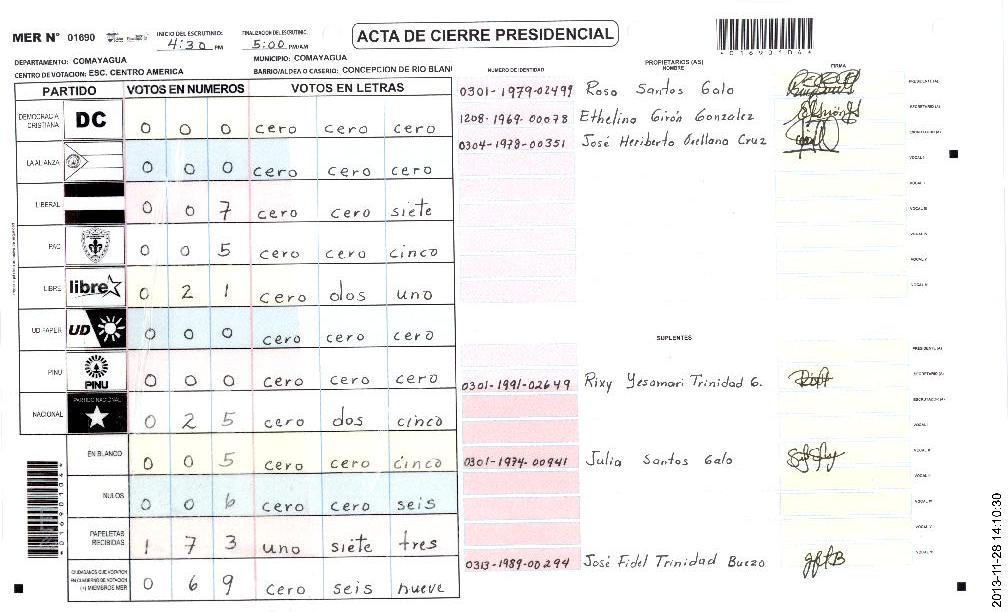 MER N° 01690
INICIO DEL ESCRUTINIO: 4:30 PM
FINALIZACION DEL ESCRUTINIO: 5:00 PM/AM
ACTA DE CIERRE PRESIDENCIAL
* 0 1 6 9 0 1 0 4 *
DEPARTAMENTO: COMAYAGUA
MUNICIPIO: COMAYAGUA
CENTRO DE VOTACION: ESC. CENTRO AMERICA
BARRIO/ALDEA O CASERIO: CONCEPCION DE RIO BLAN
PARTIDO VOTOS EN NUMEROS VOTOS EN LETRAS
DEMOCRACIA CRISTIANA DC 0 0 0 cero cero cero
LA ALIANZA 0 0 0 cero cero cero
LIBERAL 0 0 7 cero cero siete
PAC 0 0 5 cero cero cinco
LIBRE libre 0 2 1 cero dos uno
UD FAPER UD 0 0 0 cero cero cero
PINU PINU 0 0 0 cero cero cero
NACIONAL PARTIDO NACIONAL 0 2 5 cero dos cinco
EN BLANCO 0 0 5 cero cero cinco
NULOS 0 0 6 cero cero seis
PAPELETAS RECIBIDAS 1 7 3 uno siete tres
CIUDADANOS QUE VOTARON
EN CUADERNO DE VOTACION
(+) MIEMBROS MER 0 6 9 cero seis nueve
NUMERO DE IDENTIDAD
PROPIETARIOS (AS)
NOMBRE
FIRMA
0301-1979-02499 Rosa Santos Galo PRESIDENTE (A)
1208-1969-00078 Ethelina Girón Gonzalez SECRETARIO (A)
0304-1978-00351 José Heriberto Orellana Cruz ESCRUTADOR (A)
VOCAL I
VOCAL II
VOCAL III
VOCAL IV
VOCAL V
VOCAL VI
SUPLENTES
PRESIDENTE (A)
0301-1991-02649 Rixy Yesamari Trinidad G. SECRETARIO (A)
ESCRUTADOR (A)
VOCAL I
0301-1974-00941 Julia Santos Galo VOCAL II
VOCAL III
VOCAL IV
VOCAL V
0313-1989-00294 José Fidel Trinidad Buezo VOCAL VI
2013-11-28 14:10:30